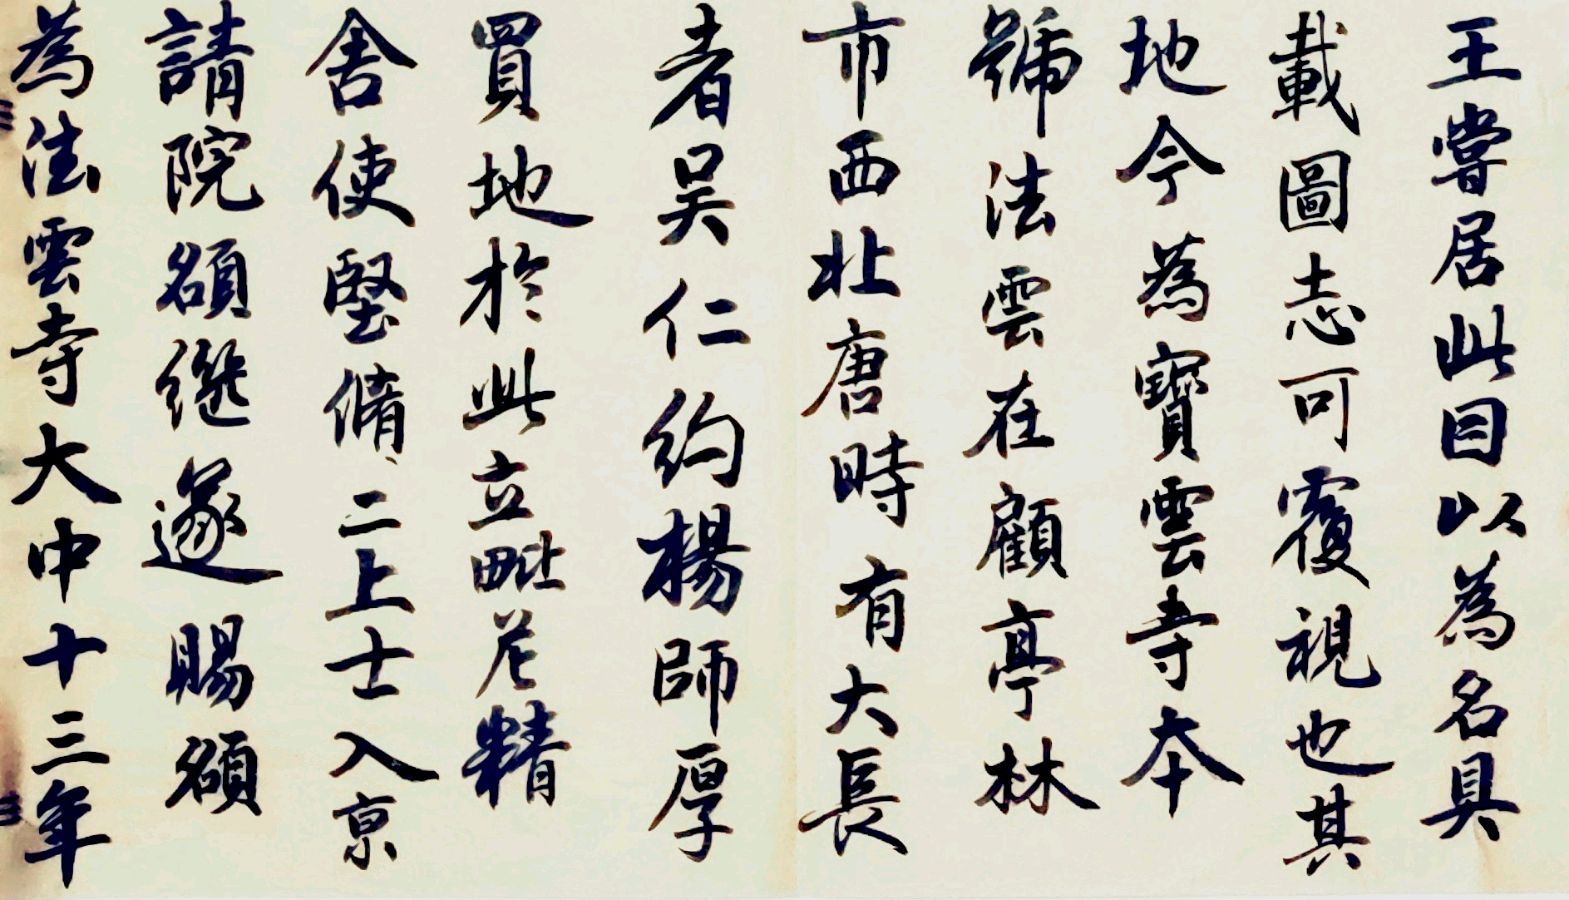 王嘗居此因以為名具
載圖志可覆視也其
地今為寶雲寺本
號法雲在顧亭林
市西北唐時有大長
者吳仁約楊師厚
買地於此立毗尼精
舍使堅脩二上士入京
請院額繼遂賜額
為法雲寺大中十三年